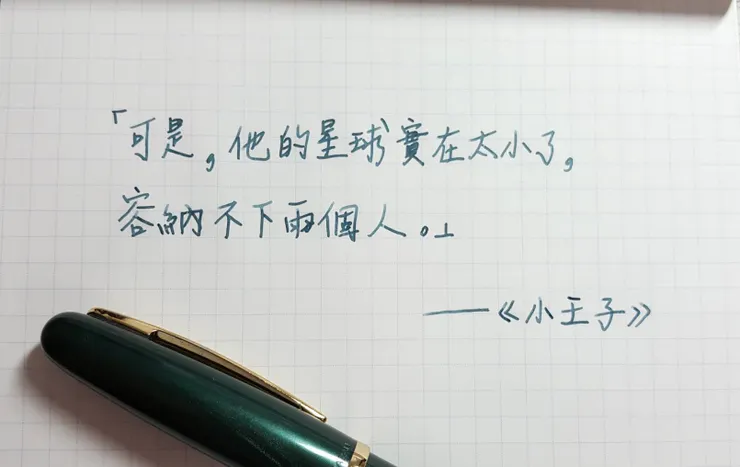 「可是，他的星球實在太小了，
容納不下兩個人。」
——《小王子》